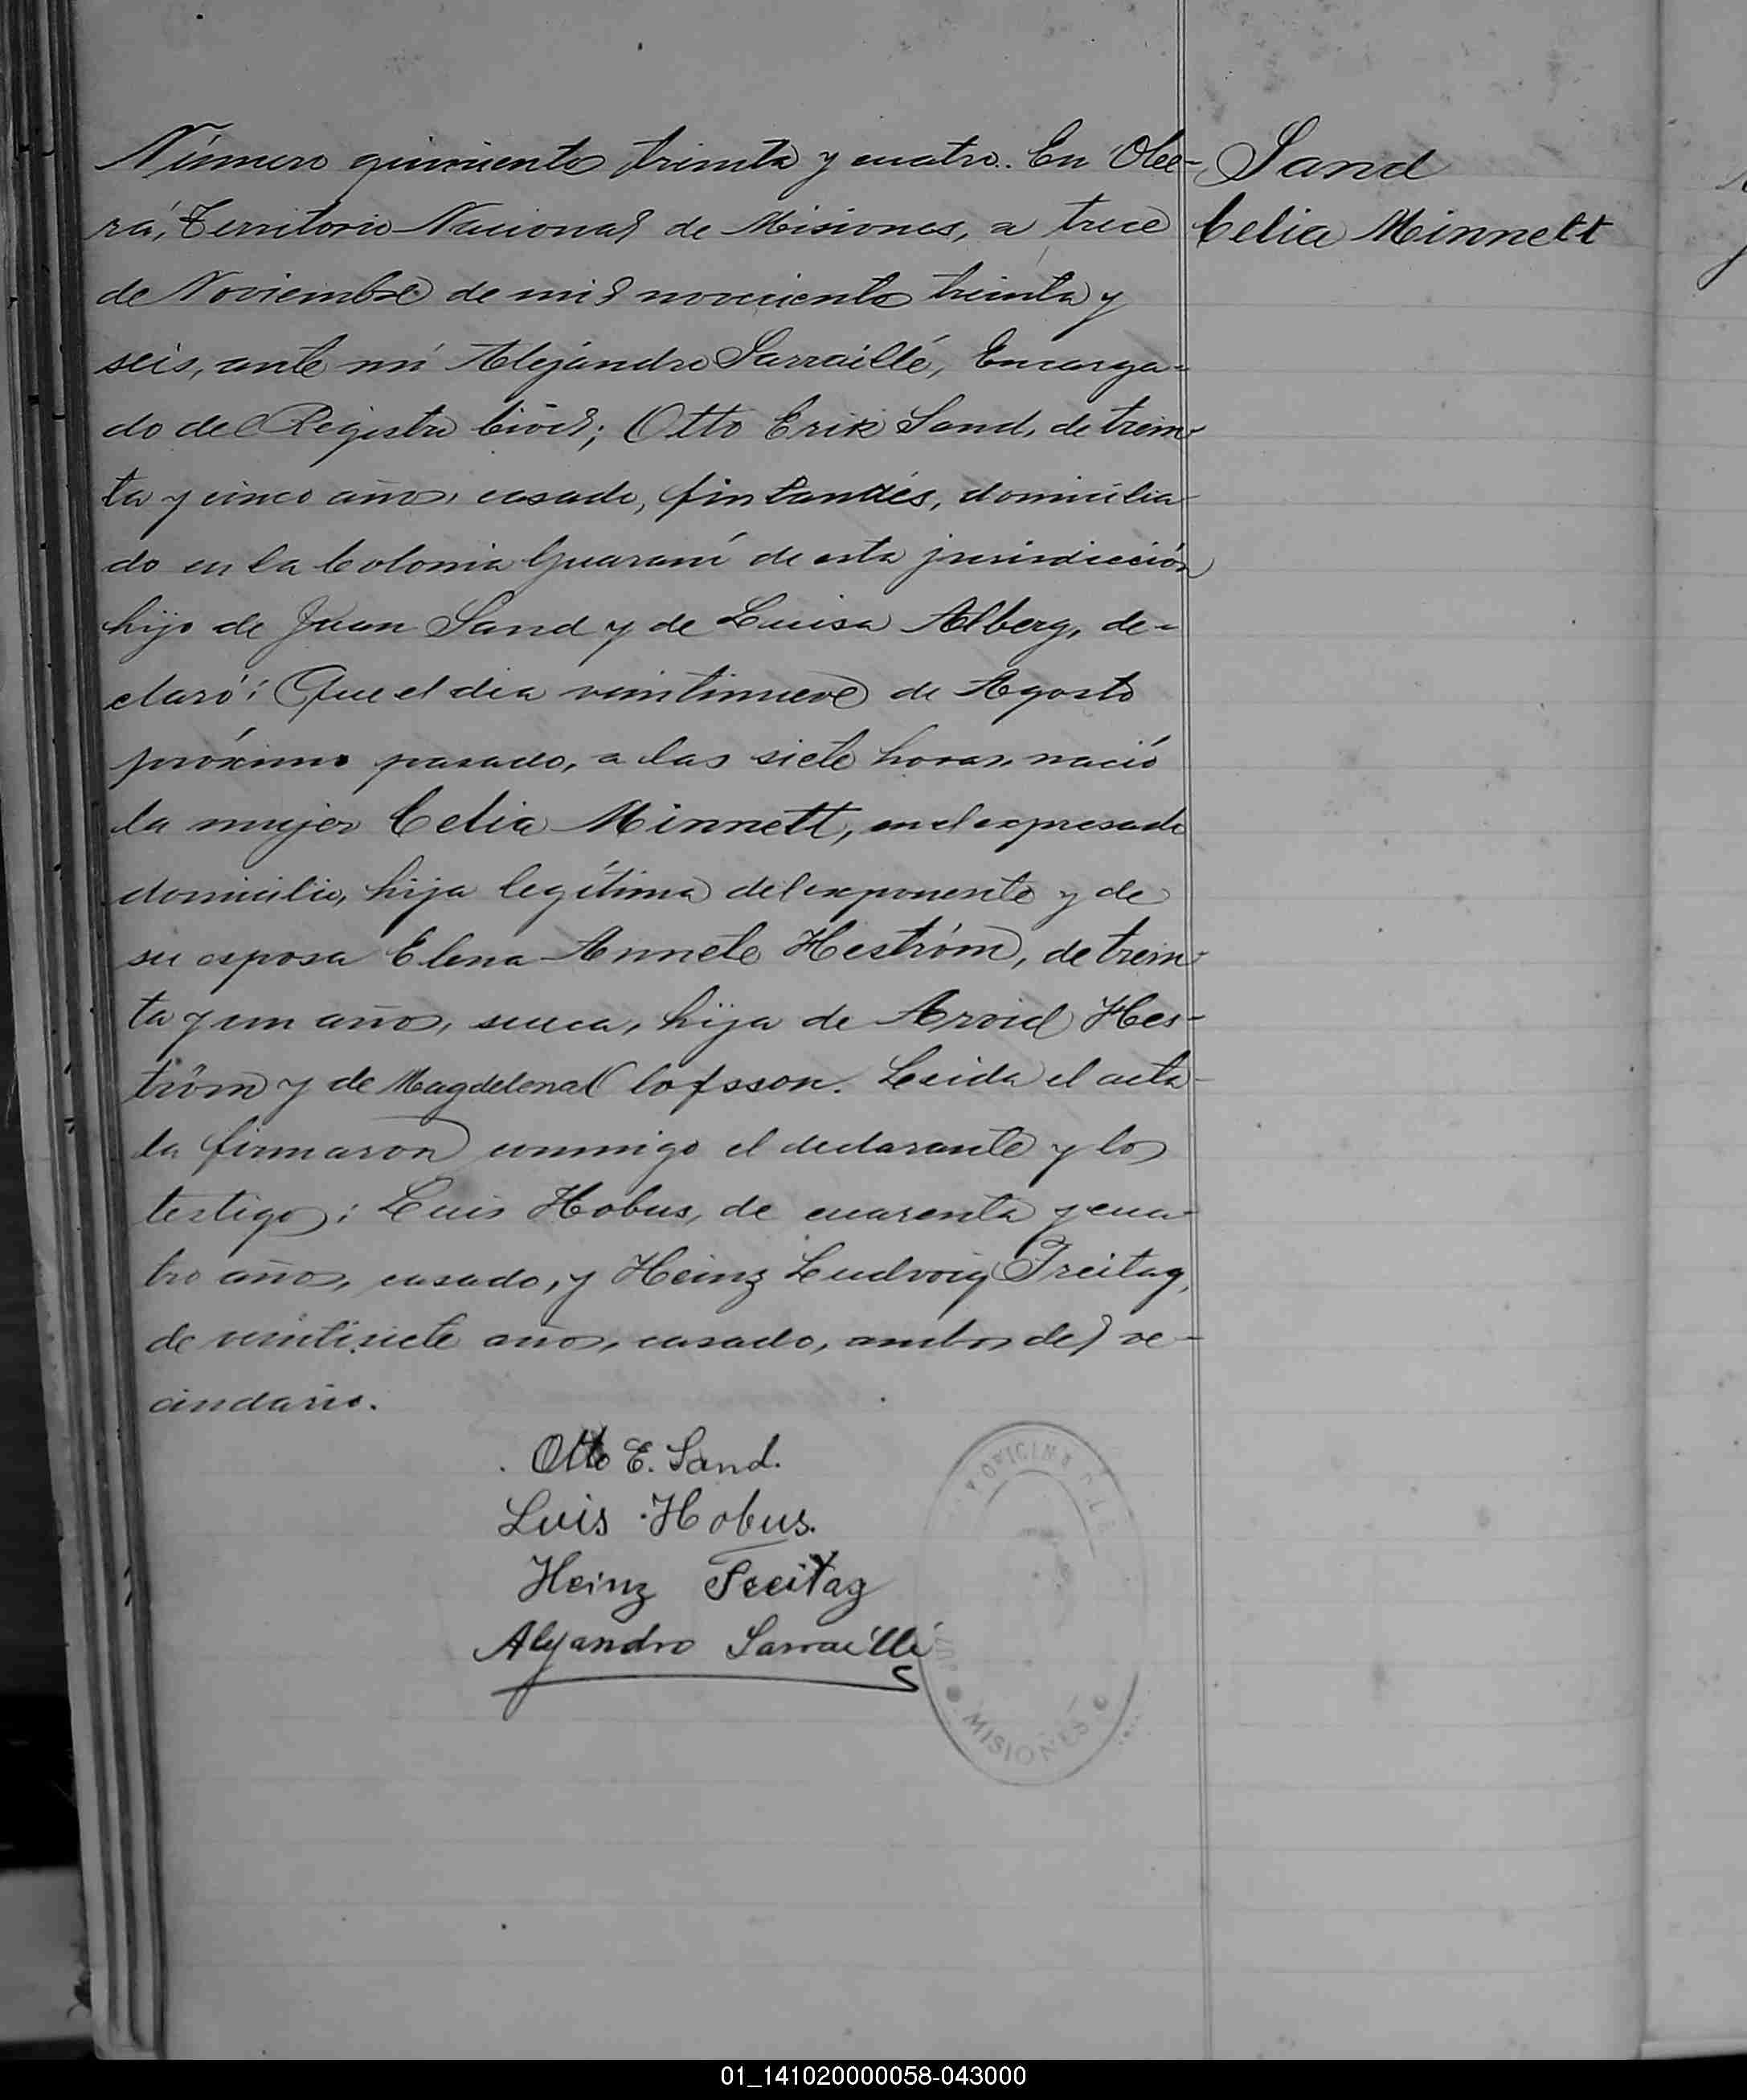 Número quinientos treinta y cuatro. En Obe-
rá, Territorio Nacional de Misiones, a trece
de Noviembre de mil novecientos treinta y
seis, ante mí Alejandro Sarraillé, Encarga-
do del Registro Civil; Otto Erik Sand, de trein-
ta y cinco años, casado, finlandés, domicilia-
do en la Colonia Guaraní de esta jurisdicción
hijo de Juan Sand y de Luisa Alberg, de-
claró: Que el día veintinueve de Agosto
próximo pasado, a las siete horas, nació
la mujer Celia Minnett, en el expresado
domicilio, hija legítima del exponente y de
su esposa Elena Annete Heström, de trein-
ta y un años, sueca, hija de Arvid Hes-
tröm y de Magdelena Clofsson. Leída el acta
la firmaron conmigo el declarante y los
testigos: Luis Hobus, de cuarenta y cua-
tro años, casado, y Heinz Ludvoig Freitag,
de veintisiete años, casado, ambos del ve-
cindario.
Sand
Celia Minnett
Otto E. Sand.
Luis Hobus.
Heinz Freitag
Alejandro Sarraillé
MISIONES
01_141020000058-043000